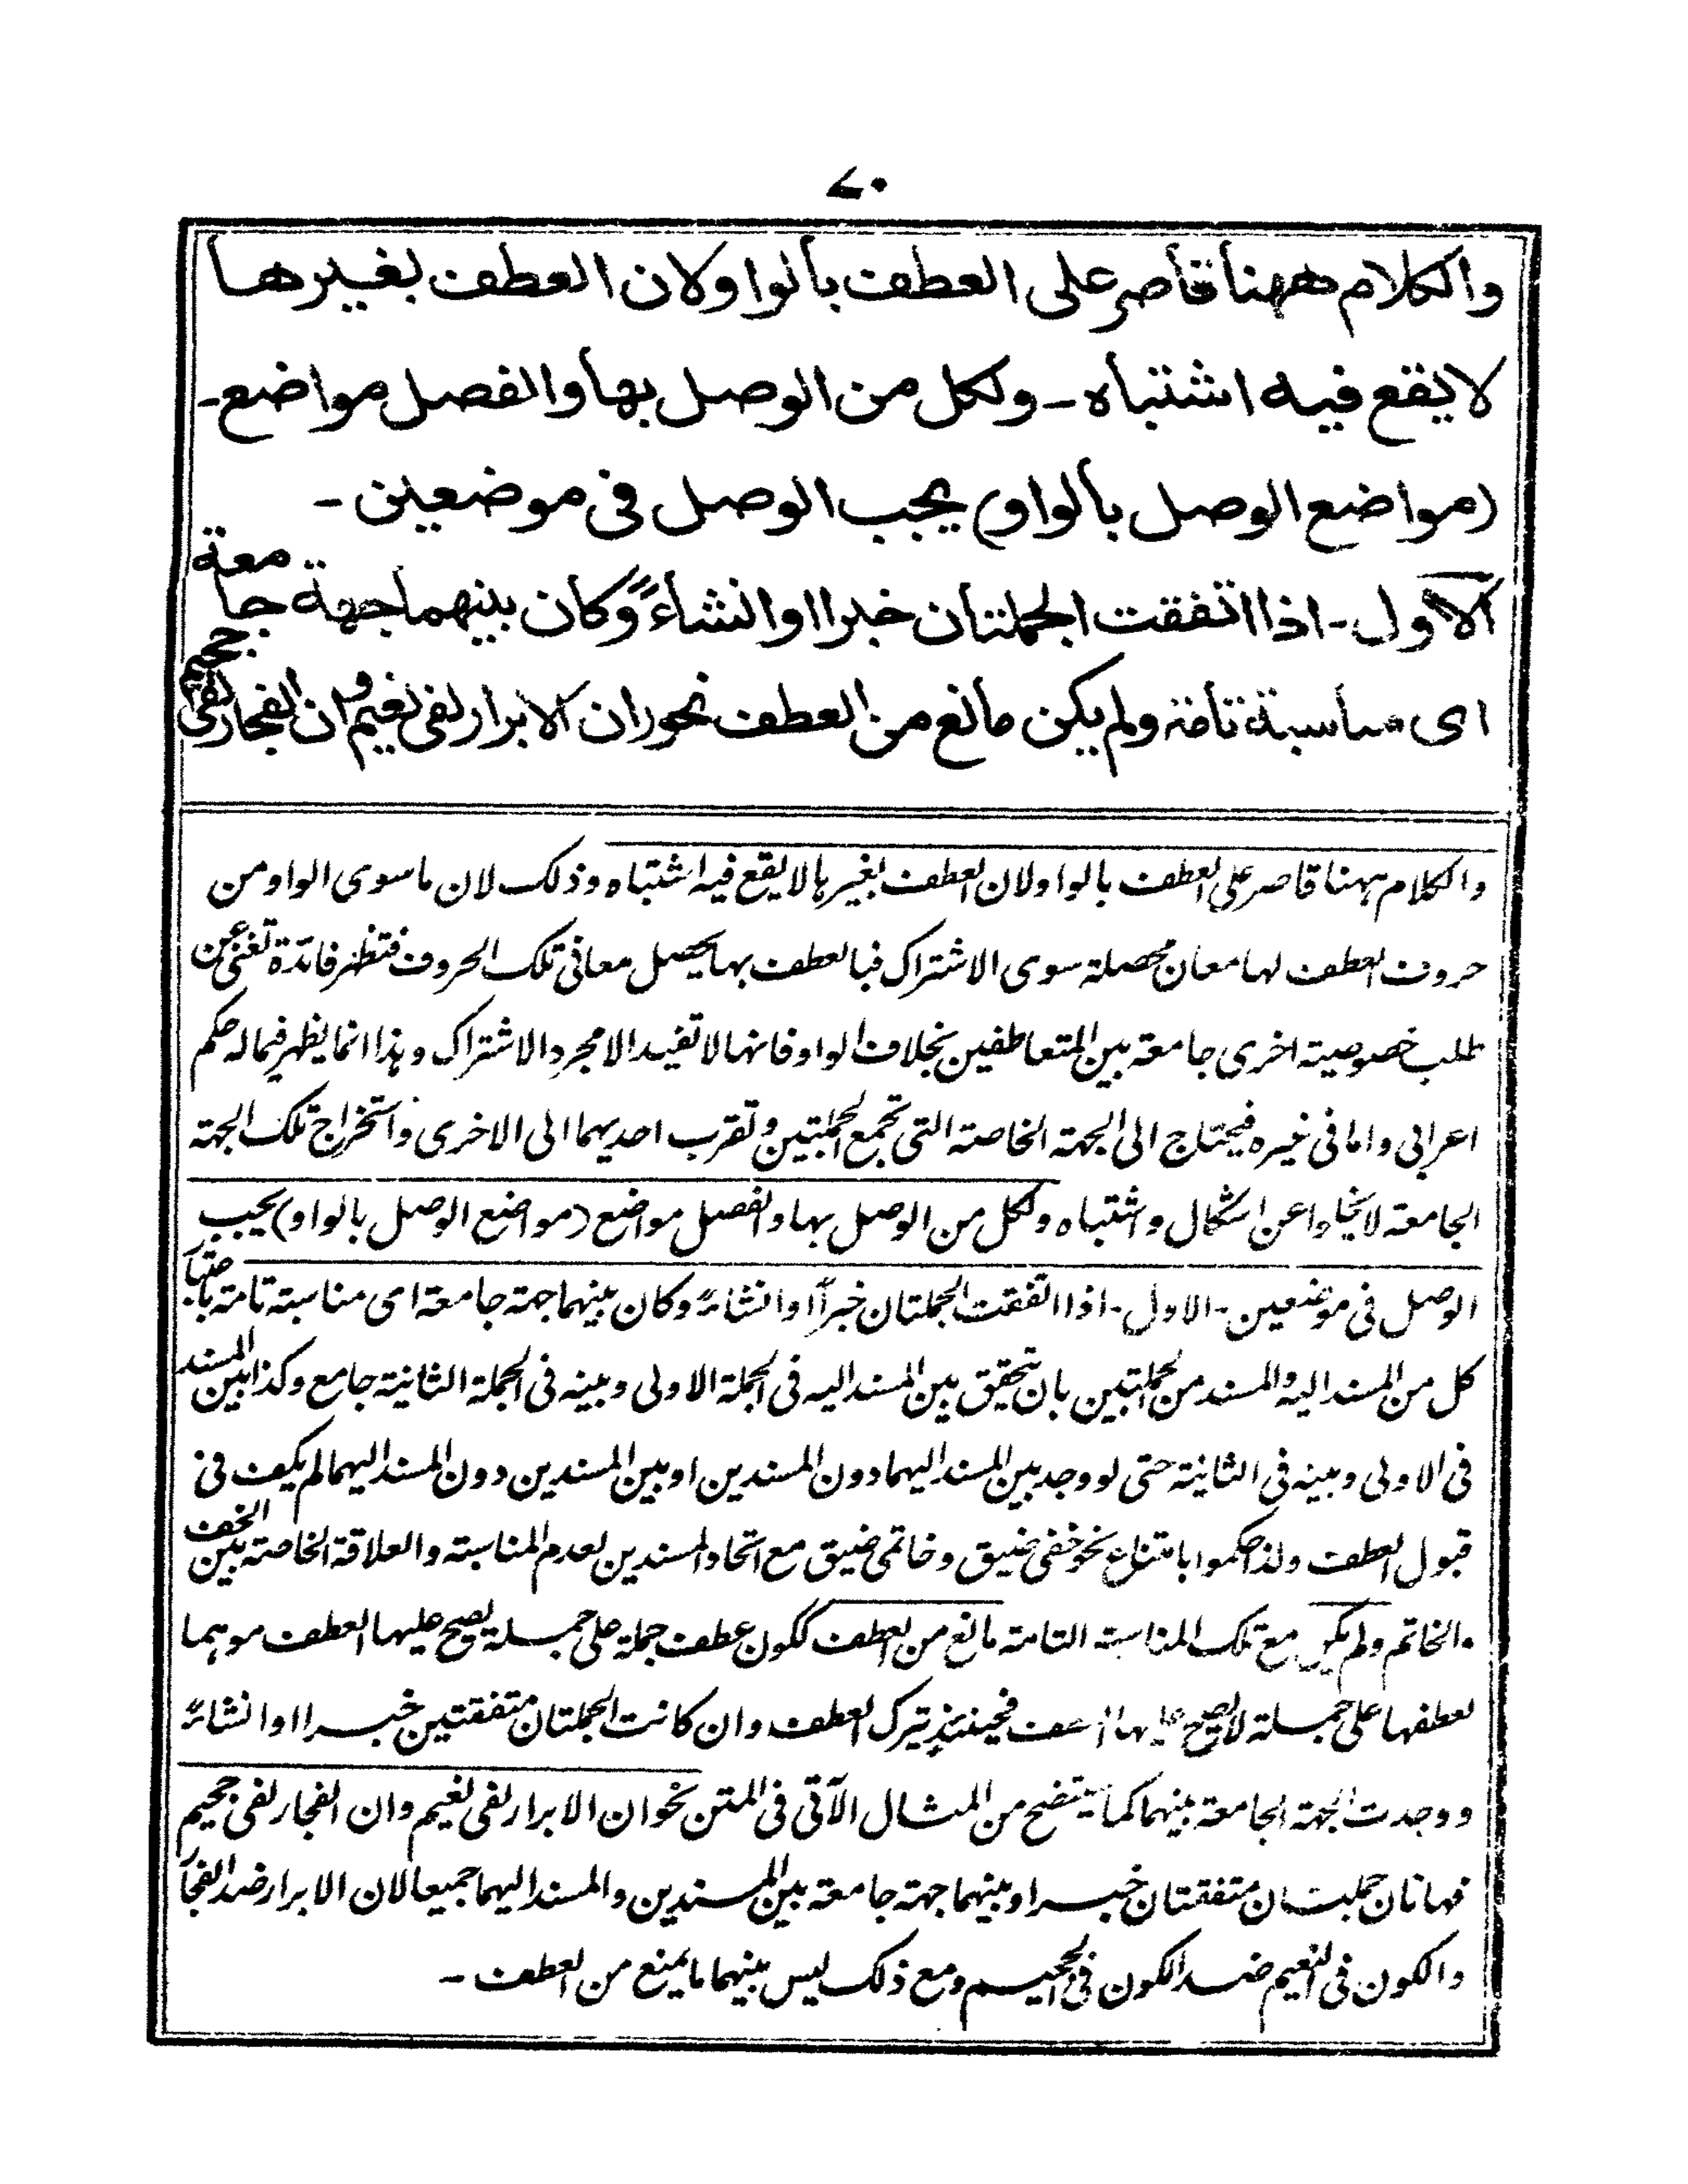 ۷۰
والكلام ههنا قاصر على العطف بالواو لان العطف بغيرها
لا يقع فيه اشتباه ـ ولكل من الوصل بها والفصل مواضع ـ
(مواضع الوصل بالواو) يجب الوصل فى موضعين ـ
الاول ـ اذا اتفقت الجملتان خبرا او انشاءً وكان بينهما جهة جامعة
اى مناسبة تامة ولم يكن مانع من العطف نحو ان الابرار لفى نعيم وان الفجار لفى جحيم
والكلام ههنا قاصر على العطف بالواو لان العطف بغيرها لا يقع فيه اشتباه وذلك لان ما سوى الواو من
حروف العطف لها معان محصلة سوى الاشتراك فبالعطف بها يحصل معانى تلك الحروف فتظهر فائدة تغنى عن
طلب خصوصية اخرى جامعة بين المتعاطفين بخلاف الواو فانها لا تفيد الا مجرد الاشتراك وهذا انما يظهر فيما له حكم
اعرابى واما فى غيره فيحتاج الى الجهة الخاصة التى تجمع الجملتين وتقرب احديهما الى الاخرى واستخراج تلك الجهة
الجامعة لا يخلو عن اشكال واشتباه ولكل من الوصل بها والفصل مواضع (مواضع الوصل بالواو) يجب
الوصل فى موضعين ـ الاول ـ اذا اتفقت الجملتان خبراً او انشاءً وكان بينهما جهة جامعة اى مناسبة تامة باعتبار
كل من المسند اليه والمسند من الجملتين بان تحقق بين المسند اليه فى الجملة الاولى وبينه فى الجملة الثانية جامع وكذا بين المسند
فى الاولى وبينه فى الثانية حتى لو وجد بين المسند اليهما دون المسندين او بين المسندين دون المسند اليهما لم يكف فى
قبول العطف ولذا حكموا بامتناع نحو خفى ضيق وخاتمى ضيق مع اتحاد المسندين لعدم المناسبة والعلاقة الخاصة بين الخف
والخاتم ولم يكن مع تلك المناسبة التامة مانع من العطف ككون عطف جملة على جملة يصح عليها العطف موهما
لعطفها على جملة لا يصح عليها العطف فحينئذ يترك العطف وان كانت الجملتان متفقتين خبرا او انشاءً
ووجدت الجهة الجامعة بينهما كما يتضح من المثال الآتى فى المتن نحو ان الابرار لفى نعيم وان الفجار لفى جحيم
فهاتان جملتان متفقتان خبرا وبينهما جهة جامعة بين المسندين والمسند اليهما جميعا لان الابرار ضد الفجار
والكون فى النعيم ضد الكون فى الجحيم ومع ذلك ليس بينهما ما يمنع من العطف ـ